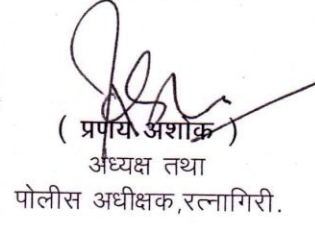 ( प्रणय अशोक )
अध्यक्ष तथा
पोलीस अधीक्षक,रत्नागिरी.